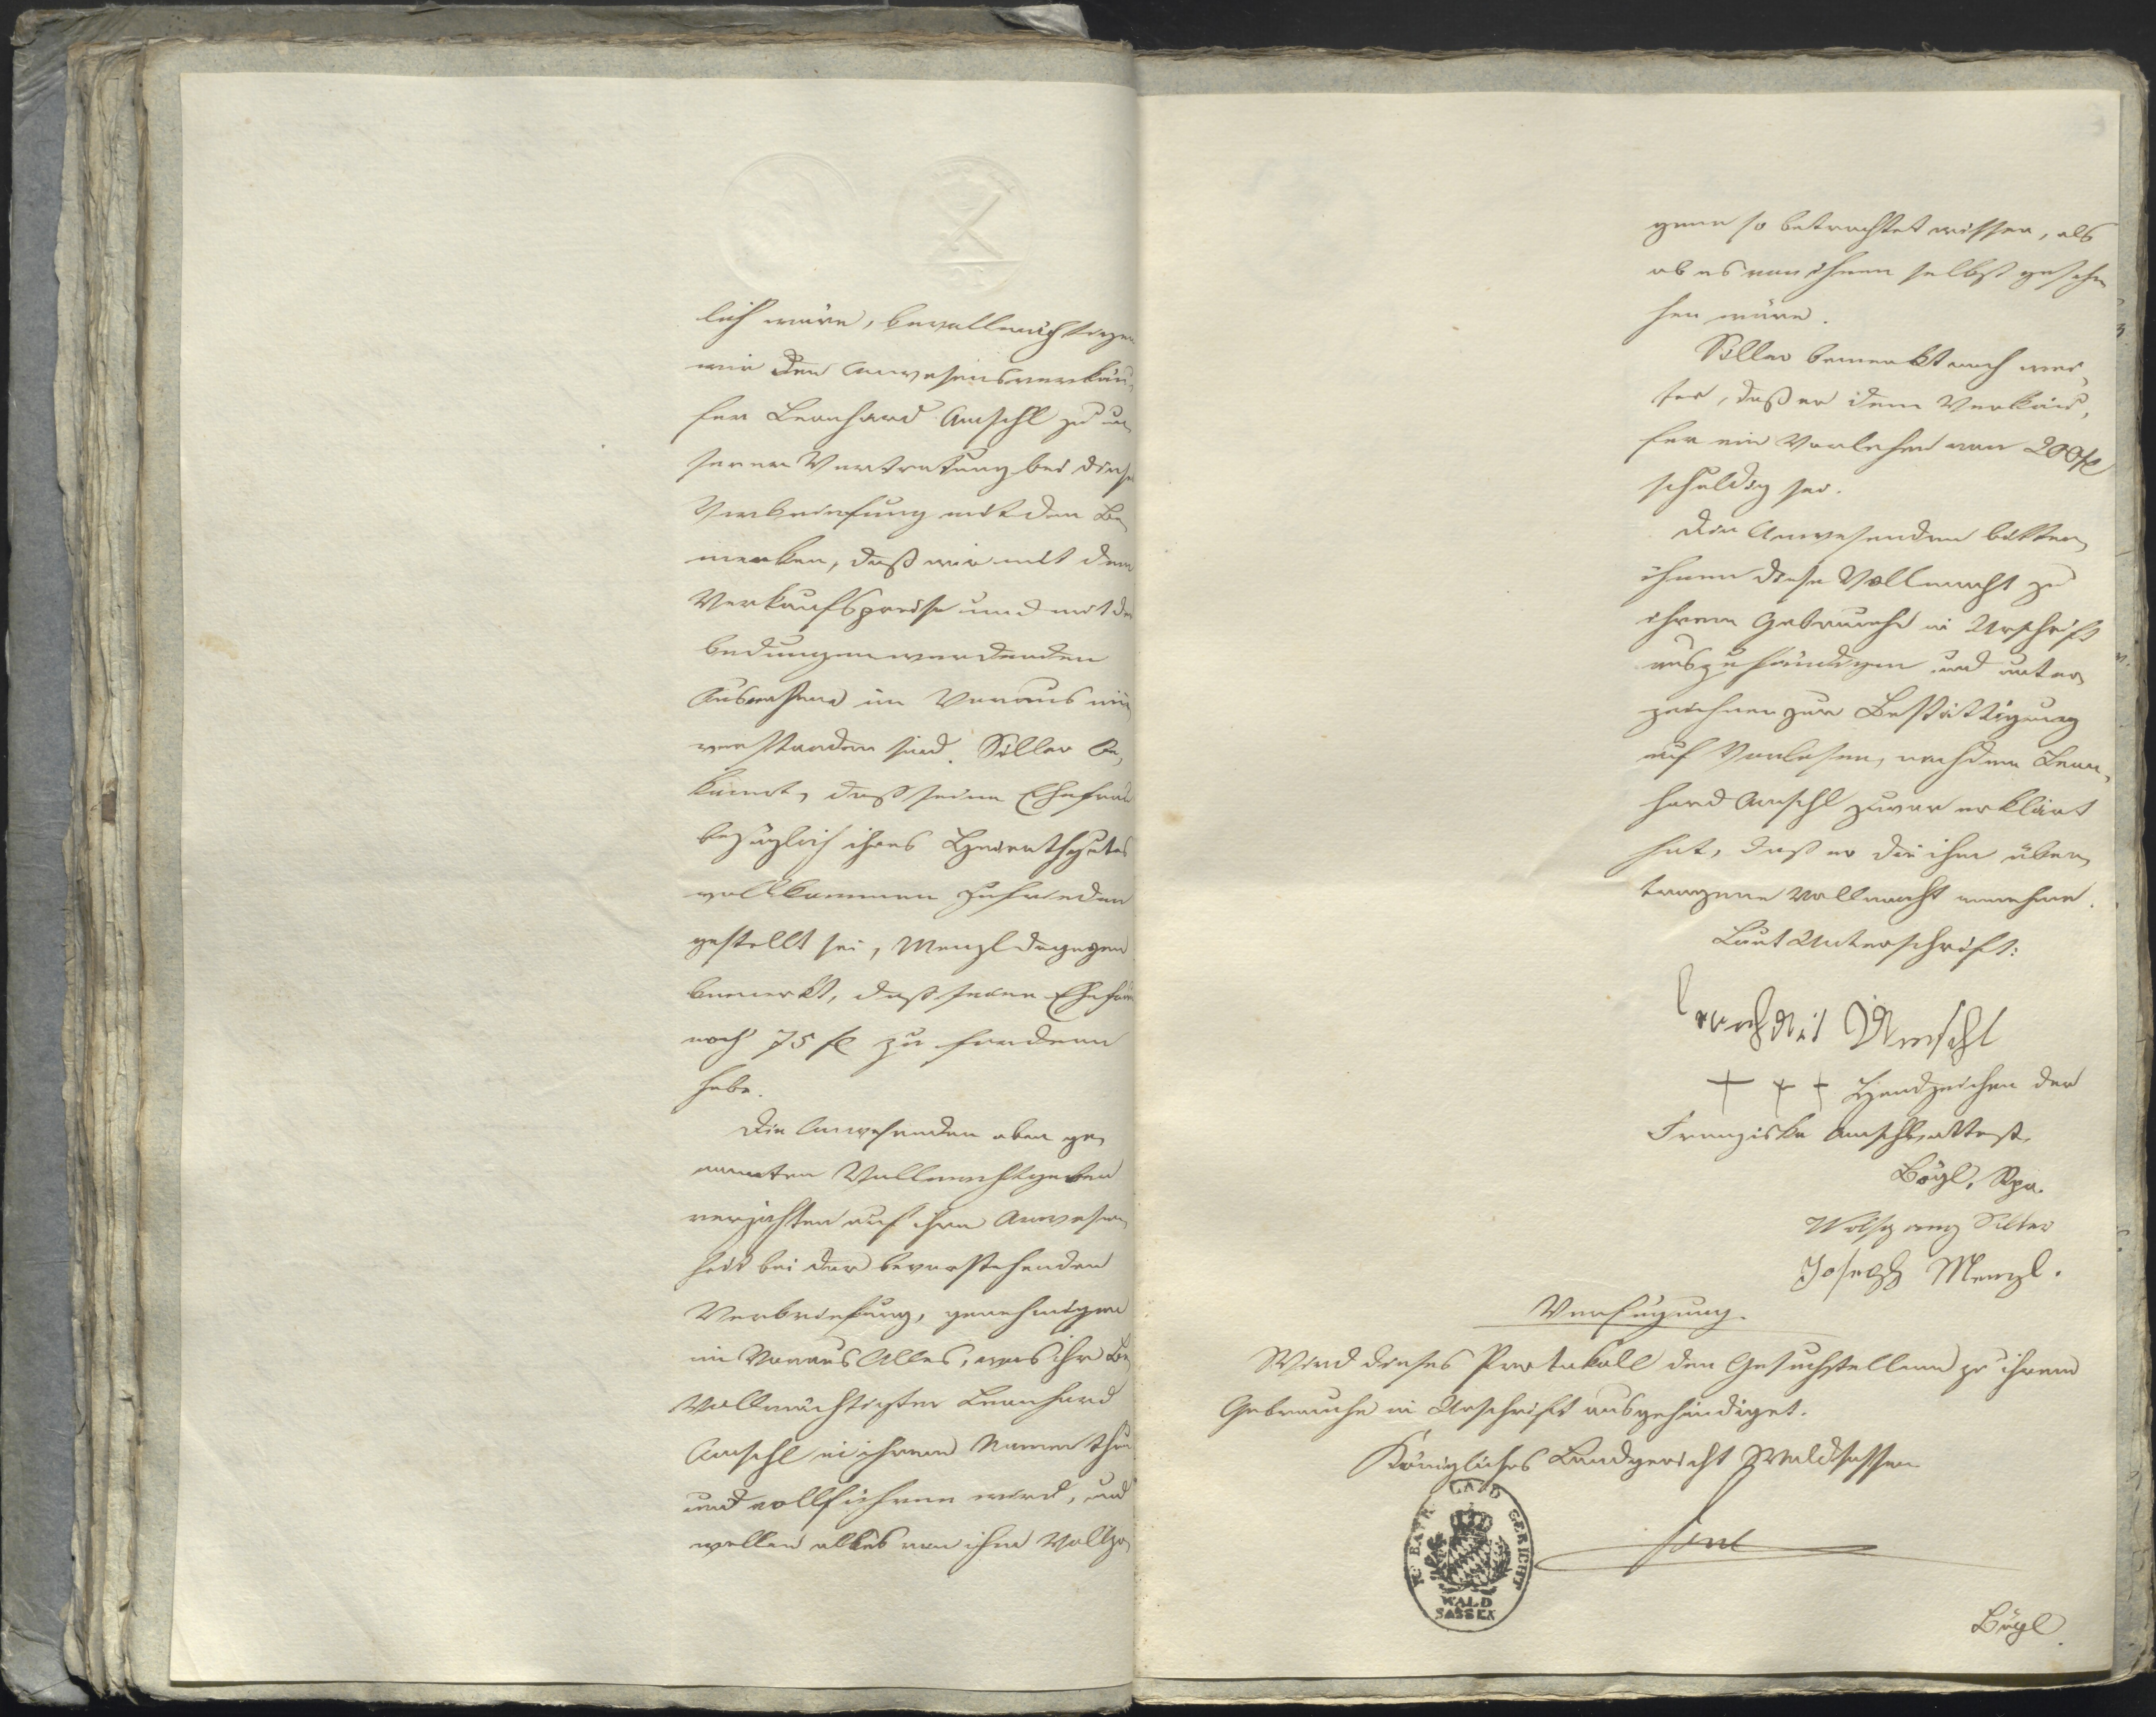 lich wäre, bevollmächtigen
wir den Anwesensverkäu-
fer Leonhard Anschl zu un-
serer Vertretung bei dieser
Verbriefung mit dem Be-
merken, daß wir mit dem
Verkaufspreise und mit den
bedungen werdenden
im Voraus ein-
verstanden sind. Siller be-
kennt, daß seine Ehefrau
bezüglich ihres Heirathgutes
vollkommen zufrieden
gestellt sei, Menzl dagegen
bemerkt, daß seine Ehefrau
noch 75 fl zu fordern
habe.
Die Anwesenden oben ge-
nannten Vollmachtgeber
verzichten auf ihre Anwesen-
heit bei der bevorstehenden
Verbriefung, genehmigen
im Voraus Alles, was ihr Be-
vollmächtigter Leonhard
Anschl in ihrem Namen thun
und vollführen wird, und
wollen alles von ihm Vollzo-
gene so betrachtet wissen, als
ob es von ihnen selbst gesche-
hen wäre.
Siller bemerkt noch wei-
ter, daß er dem Verkäu-
fer ein Vorlehen von 200 fl
schuldig sei.
Die Anwesenden bitten
ihnen diese Vollmacht zu
ihrem Gebrauche in Urschrift
auszuhändigen und unter-
zeichnen zur Bestättigung
auf Vorlesen, nachdem Leon-
hard Anschl zuvor erklärt
hat, daß er die ihm über-
tragene Vollmacht annehme.
Laut Unterschrift:
Leonhard Anschl
+ + + Handzeichen der
Franziska Anschl, attest.
Bögl, Rpa.
Wolfgang Siller
Joseph Menzl.
Verfügung.
Wird dieses Protokoll den Gesuchstellern zu ihrem
Gebrauche in Urschrift ausgehändiget.
Königliches Landgericht Waldsassen
K. BAYR. LAND GERICHT
WALD
SASSEN
Bögl.